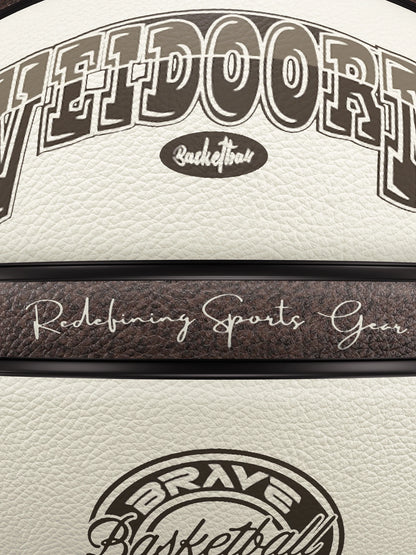 WEIDOORN
Basketball
Redefining Sports Gear
BRAVE
Basketball